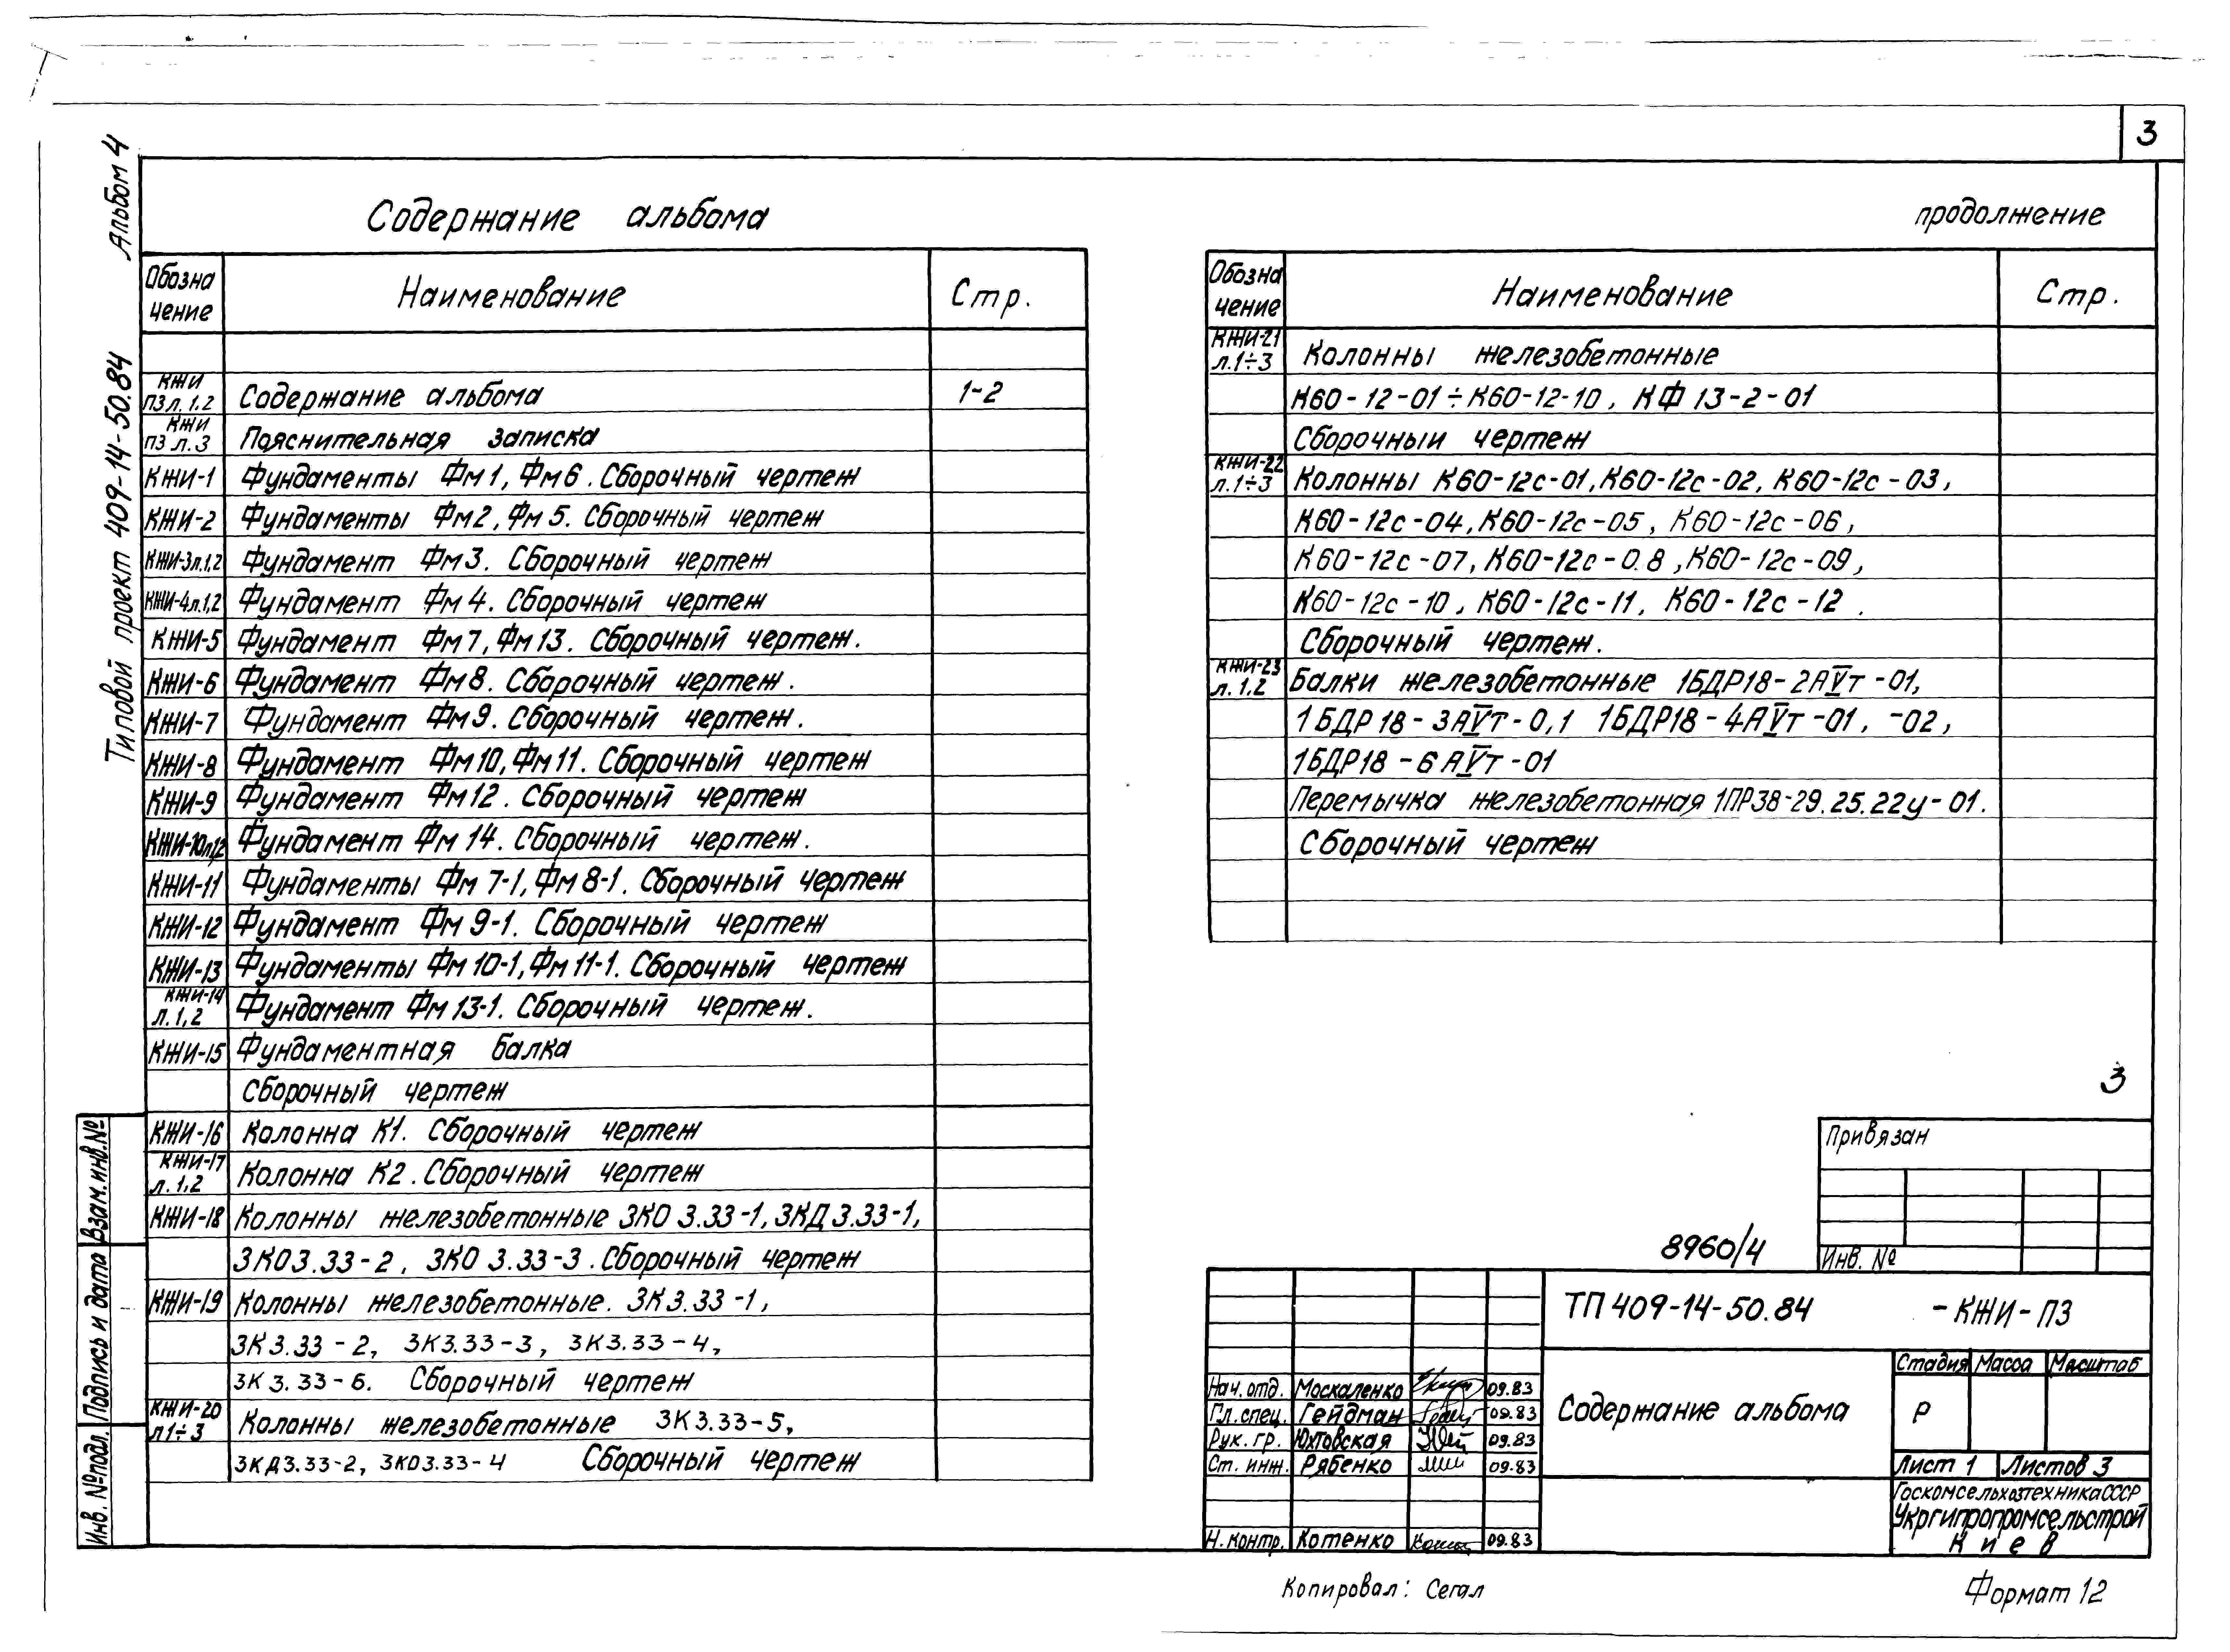 3
Альбом 4
Типовой проект 409-14-50.84
Содержание альбома
Обозна
чение
Наименование
Стр.
КЖИ
ПЗ л. 1,2
Содержание альбома
1-2
КЖИ
ПЗ л.3
Пояснительная записка
КЖИ-1 Фундаменты Фм1, Фм6. Сборочный чертеж
КЖИ-2 Фундаменты Фм2, Фм5. Сборочный чертеж
КЖИ-3л.1,2 Фундамент Фм3. Сборочный чертеж
КЖИ-4л.1,2 Фундамент Фм4. Сборочный чертеж
КЖИ-5 Фундамент Фм7, Фм13. Сборочный чертеж.
КЖИ-6 Фундамент Фм8. Сборочный чертеж.
КЖИ-7 Фундамент Фм9. Сборочный чертеж.
КЖИ-8 Фундамент Фм10, Фм11. Сборочный чертеж
КЖИ-9 Фундамент Фм12. Сборочный чертеж
КЖИ-10л1,2 Фундамент Фм 14. Сборочный чертеж.
КЖИ-11 Фундаменты Фм 7-1, Фм 8-1. Сборочный чертеж
КЖИ-12 Фундамент Фм 9-1. Сборочный чертеж
КЖИ-13 Фундаменты Фм 10-1, Фм 11-1. Сборочный чертеж
КЖИ-14
л.1,2
Фундамент Фм 13-1. Сборочный чертеж.
КЖИ-15 Фундаментная балка
Сборочный чертеж
КЖИ-16 Колонна К1. Сборочный чертеж
КЖИ-17
л.1,2
Колонна К2. Сборочный чертеж
КЖИ-18 Колонны железобетонные 3КО 3.33-1, 3КД 3.33-1,
3КО3.33-2, 3КО 3.33-3. Сборочный чертеж
КЖИ-19 Колонны железобетонные. 3К3.33-1,
3К3.33-2, 3К3.33-3, 3К3.33-4,
3К3.33-6. Сборочный чертеж
КЖИ-20
л1÷3
Колонны железобетонные 3К3.33-5,
3КД3.33-2, 3КО3.33-4 Сборочный чертеж
продолжение
Обозна
чение
Наименование
Стр.
КЖИ-21
л.1÷3
Колонны железобетонные
К60-12-01÷К60-12-10, КФ 13-2-01
Сборочный чертеж
КЖИ-22
л.1÷3
Колонны К60-12с-01, К60-12с-02, К60-12с-03,
К60-12с-04, К60-12с-05, К60-12с-06,
К60-12с-07, К60-12с-0.8, К60-12с-09,
К60-12с-10, К60-12с-11, К60-12с-12.
Сборочный чертеж.
КЖИ-23
л.1.2
Балки железобетонные 1БДР18-2АVт-01,
1БДР18-3АVт-0,1 1БДР18-4АVт-01, -02,
1БДР18-6АVт-01
Перемычка железобетонная 1ПР38-29.25.22у-01.
Сборочный чертеж
3
Привязан
Инв. №
8960/4
ТП 409-14-50.84 -КЖИ-ПЗ
Содержание альбома
Стадия Масса Масштаб
Р
Лист 1 Листов 3
Госкомсельхозтехника СССР
Укргипропромсельстрой
Киев
Нач. отд. Москаленко 09.83
Гл. спец. Гейдман 09.83
Рук. гр. Юхтовская 09.83
Ст. инж. Рябенко 09.83
Н. контр. Котенко 09.83
Взам. инв. №
Подпись и дата
Инв. № подл.
Копировал: Сегал
Формат 12